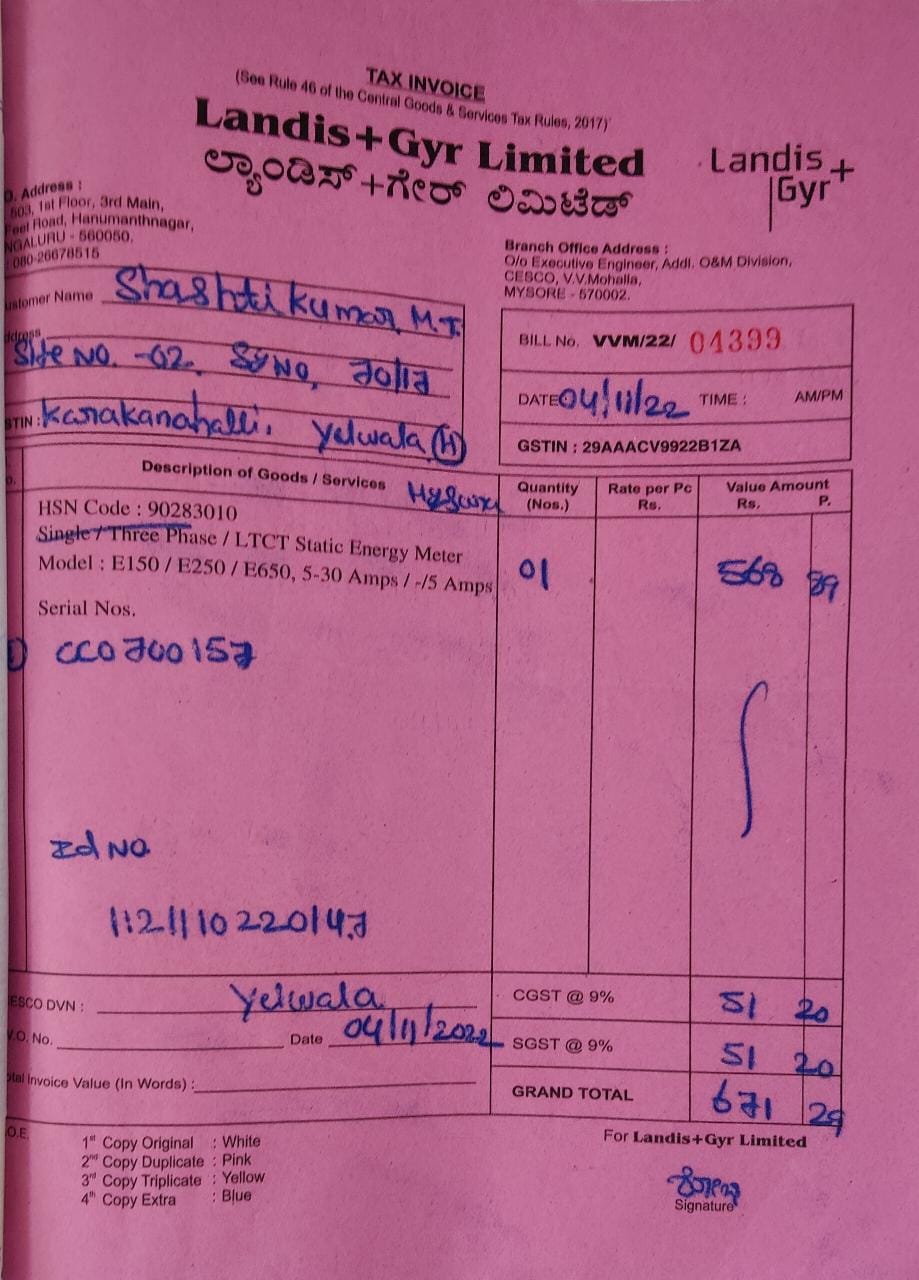 TAX INVOICE
(See Rule 46 of the Central Goods & Services Tax Rules, 2017)
Landis+Gyr Limited
ಲ್ಯಾಂಡಿಸ್+ಗೇರ್ ಲಿಮಿಟೆಡ್
Landis+
Gyr
O. Address :
503, 1st Floor, 3rd Main,
Feet Road, Hanumanthnagar,
NGALURU - 560050.
: 080-26678515
Branch Office Address :
O/o Executive Engineer, Addl. O&M Division,
CESCO, V.V.Mohalla,
MYSORE - 570002.
ustomer Name Shashti kumar M.T.
ddress
Site NO. -02. Sy NO, 70/17
STIN : Karakanahalli, Yelwala (H)
Mysuru
BILL No. VVM/22/ 04399
DATE 04/11/22 TIME : AM/PM
GSTIN : 29AAACV9922B1ZA
Description of Goods / Services Quantity (Nos.) Rate per Pc Rs. Value Amount Rs. P.
HSN Code : 90283010
Single / Three Phase / LTCT Static Energy Meter
Model : E150 / E250 / E650, 5-30 Amps / -/5 Amps 01 568 89
Serial Nos.
1) CCO700157
Id NO
1121110220147
ESCO DVN : Yelwala CGST @ 9% 51 20
V.O. No. Date 04/11/2022 SGST @ 9% 51 20
otal Invoice Value (In Words) : GRAND TOTAL 671 29
.O.E. For Landis+Gyr Limited
1st Copy Original : White
2nd Copy Duplicate : Pink
3rd Copy Triplicate : Yellow
4th Copy Extra : Blue
Signature